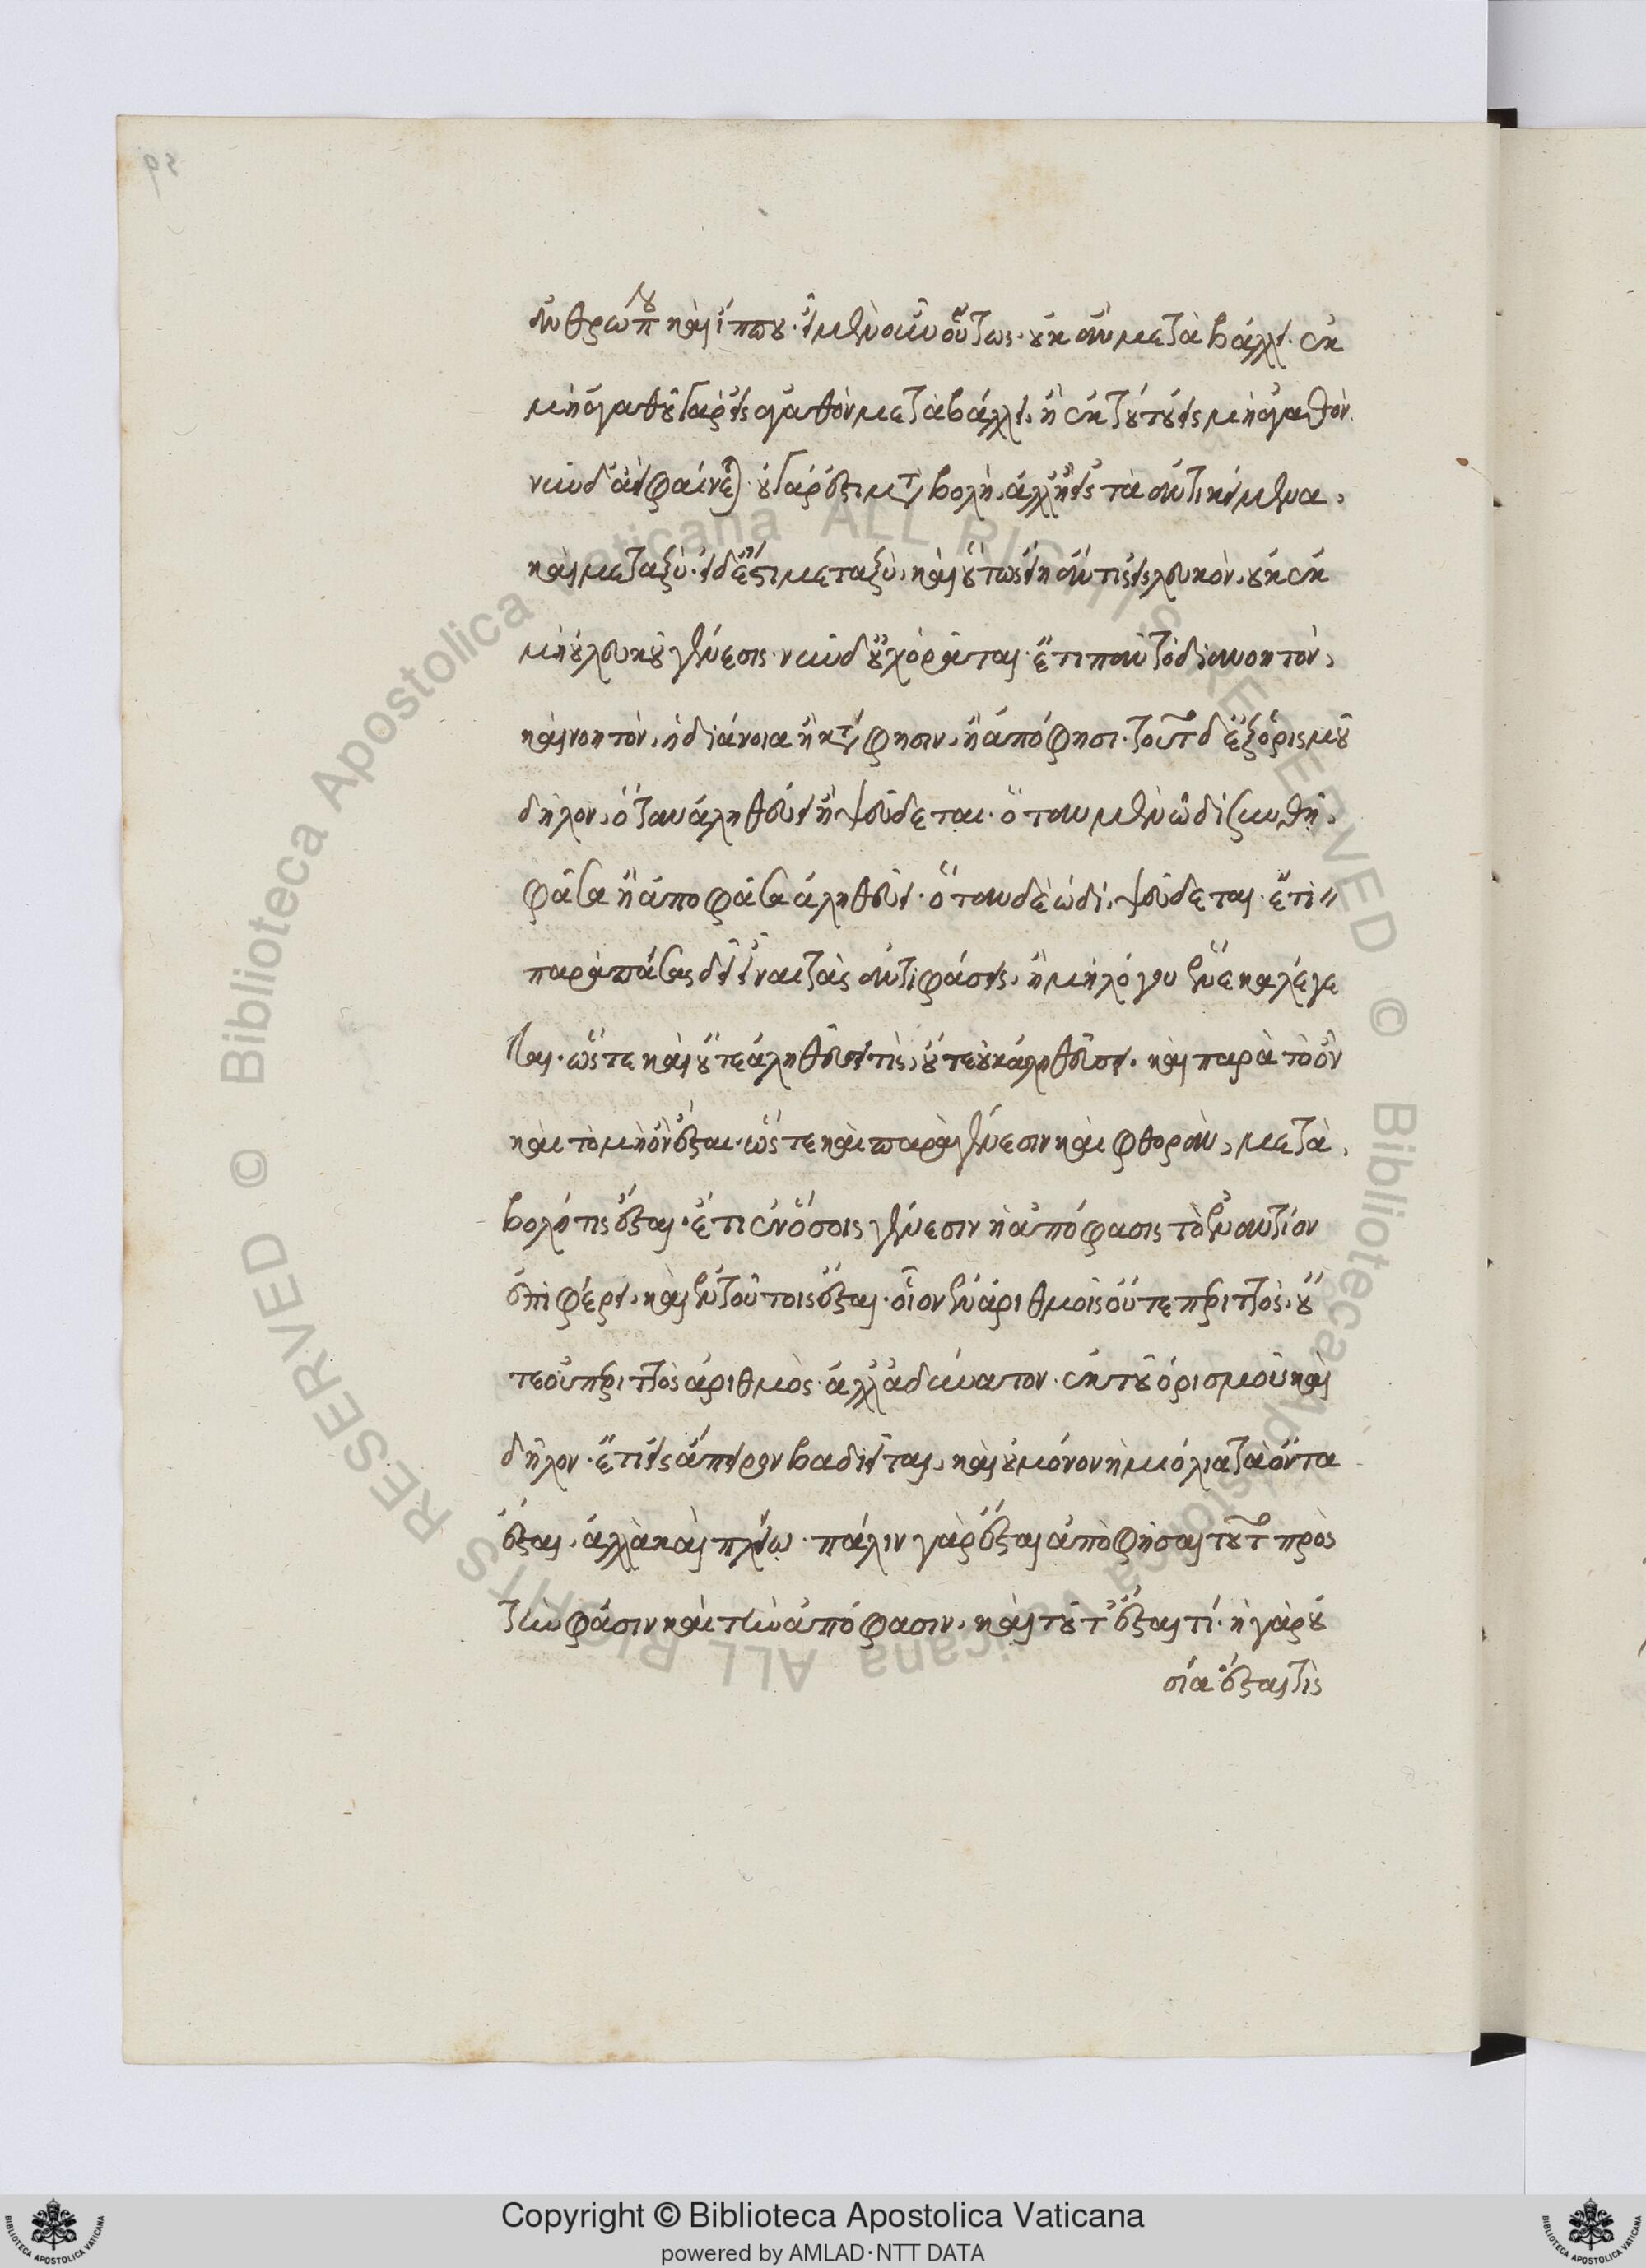 ἀνθρώπου καὶ ἵππου. εἰ μὲν οὖν οὕτως. οὐκ ἂν μεταβάλλει. ἐκ
μὴ ἀγαθοῦ γὰρ εἰς ἀγαθὸν μεταβάλλει. ἢ ἐκ τούτου εἰς μὴ ἀγαθόν.
νῦν δ' ἀεὶ φαίνεται. οὐ γάρ ἐστι μεταβολὴ, ἀλλ' ἢ εἰς τὰ ἀντικείμενα,
καὶ μεταξύ. εἰ δ' ἔστι μεταξὺ, καὶ οὕτως εἴη ἄν τις εἰς λευκὸν, οὐκ ἐκ
μὴ οὐ λευκοῦ γένεσις. νῦν δ' οὐχ ὁρᾶται. ἔτι πᾶν τὸ διανοητὸν,
καὶ νοητὸν, ἡ διάνοια ἢ κατάφησιν, ἢ ἀπόφησι. τοῦτο δ' ἐξ ὁρισμοῦ
δῆλον, ὅταν ἀληθεύει ἢ ψεύδεται. ὅταν μὲν ὡδὶ συνθῇ,
φᾶσα ἢ ἀποφᾶσα ἀληθεύει. ὅταν δὲ ὡδὶ, ψεύδεται. ἔτι
παρὰ πάσας δεῖ εἶναι τὰς ἀντιφάσεις, ἢ μὴ λόγου ἕνεκα λέγε
ται. ὥστε καὶ οὔτε ἀληθεύσει τὶς, οὔτε οὐκ ἀληθεύσει. καὶ παρὰ τὸ ὂν
καὶ τὸ μὴ ὂν ἔσται. ὥστε καὶ παρὰ γένεσιν καὶ φθορὰν, μετα
βολή τις ἔσται. ἔτι ἐν ὅσοις γένεσιν ἡ ἀπόφασις τὸ ἐναντίον
ἐπιφέρει. καὶ ἐν τούτοις ἔσται. οἷον ἐν ἀριθμοῖς οὔτε περιττὸς, οὔ
τε οὐ περιττὸς ἀριθμὸς. ἀλλ' ἀδύνατον. ἐκ τοῦ ὁρισμοῦ καὶ
δῆλον. ἔτι εἰς ἄπειρον βαδιεῖται, καὶ οὐ μόνον ἡμιόλια τὰ ὄντα
ἔσται, ἀλλὰ καὶ πλείω. πάλιν γὰρ ἔσται ἀποφῆσαι τοῦτο πρὸς
τὴν φάσιν καὶ τὴν ἀπόφασιν, καὶ τοῦτ' ἔσται τί. ἡ γὰρ οὐ
σία ἔσται τὶς